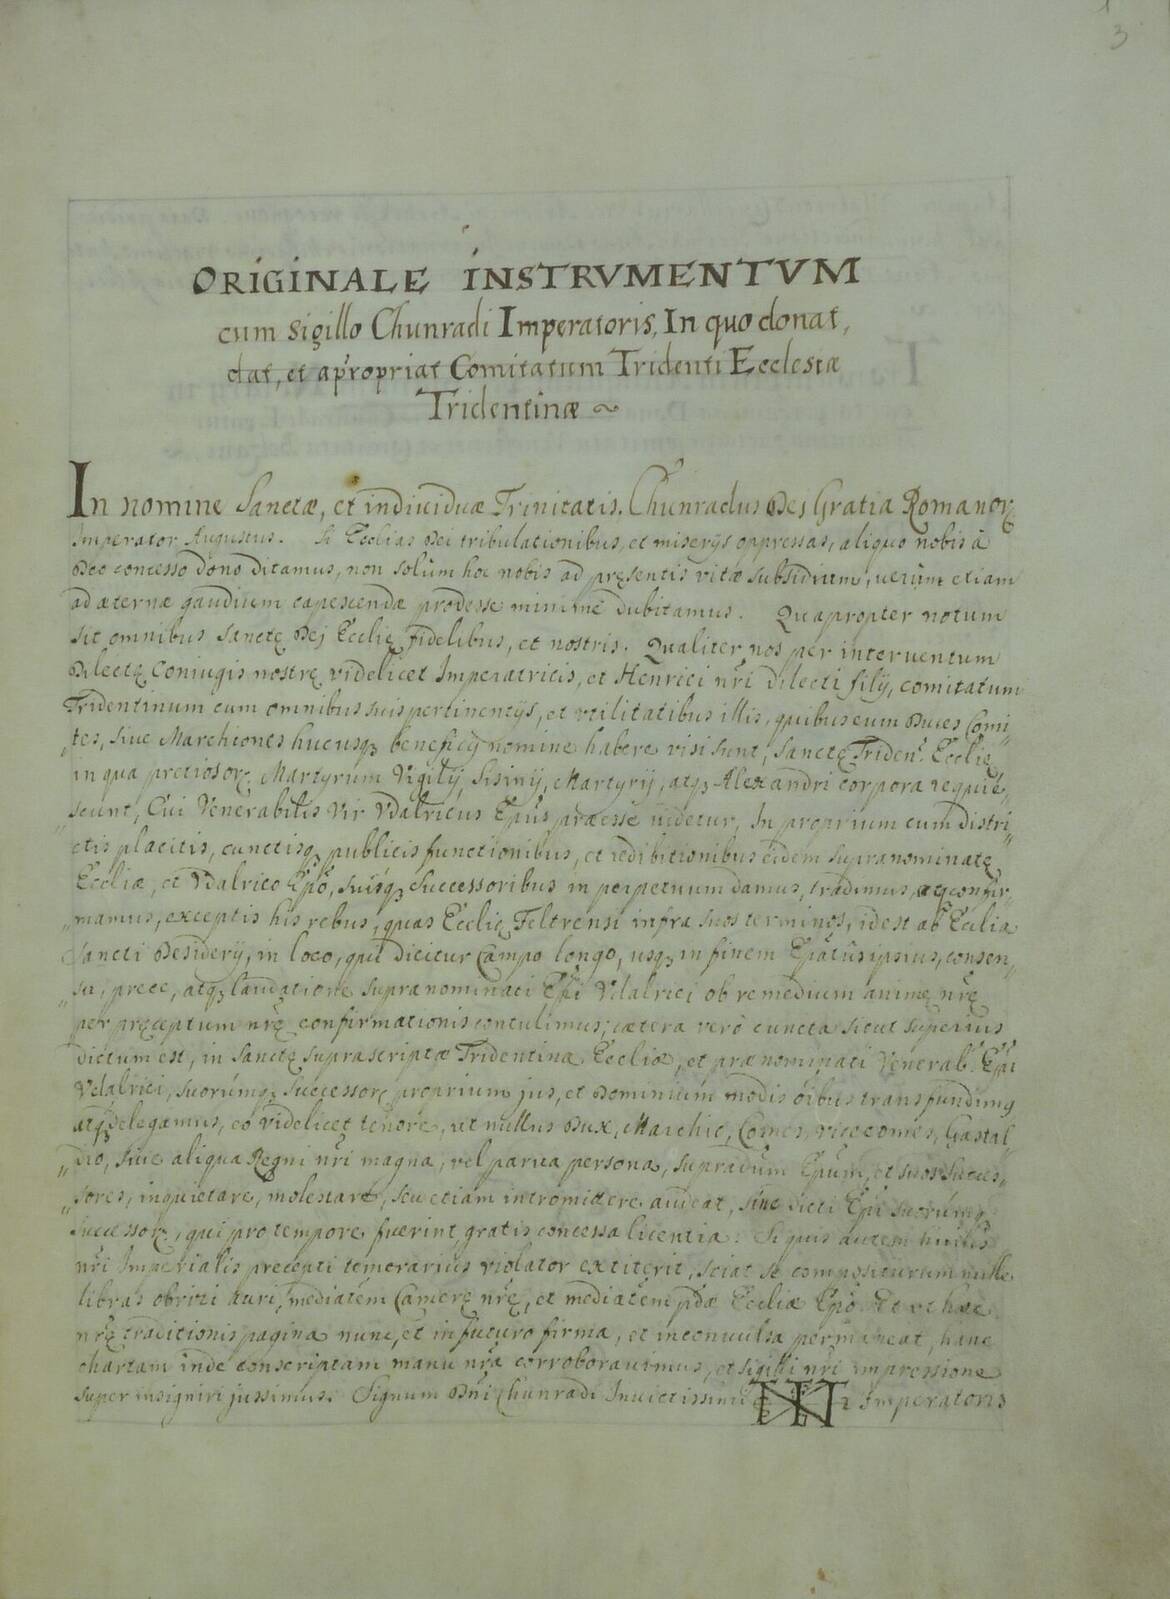 3
ORIGINALE INSTRVMENTVM
cum sigillo Chunradi Imperatoris, In quo donat,
dat, et apropriat Comitatum Tridenti Ecclesiæ
Tridentinæ ~
In nomine Sanctæ, et indiuiduæ Trinitatis. Chunradus Dej Gratia Romanor.
Imperator Augustus. Si Ecclias Dei tribulationibus, et miserijs oppressas, aliquo nobis à
Deo concesso dono ditamus, non solùm hoc nobis ad pręsentis vitæ subsidium, uerùm etiam
ad æternæ gaudium capescendæ prodesse minimè dubitamus. Quapropter notum
sit omnibus Sanctę Dej Ecclię fidelibus, et nostris. Qualiter nos per interuentum
Dilectę Coniugis nostrę videlicet Imperatricis, et Henrici nr̃i dilecti filij, comitatum
Tridentinum cum omnibus suis pertinentijs, et vtilitatibus illis, quibus eum Duces Comi„
„tes, siue Marchiones hucusq; beneficij nomine habere visi sunt, Sanctę Triden. Ecclię
in qua pretiosor. Martyrum Vigilij, Sisinij, Martyrij, atq; Alexandri corpora requie„
„scunt, Cui Venerabilis vir Vdalricus Epũs præesse uidetur, In proprium cum distri„
ctis placitis, cunctisq; publicis functionibus, et redibitionibus eidem supranominatę
Eccliæ, et Vdalrico Epõ, suisq; successoribus in perpetuum damus, tradimus, atq; confir„
„mamus, exceptis his rebus, quas Ecclię Feltrensi infra suos terminos, idest ab Ecclia
Sancti Desiderij, in loco, qui dicitur Campo longo, usq; in finem Epatus ipsius, consen„
„su, prece, atq; laudatione supranominati Epi Vdalrici ob remedium animę nrę
per pręceptum nrę confirmationis contulimus; cætera verò cuncta sicut superius
dictum est, in Sanctę suprascriptæ Tridentinæ Eccliæ, et prænominati Venerab. Epi
Vdalrici, suorumq; successor. proprium jus, et Dominium modis oĩbus transfundimus
atq; delegamus, eo videlicet tenore, ut nullus Dux, Marchio, Comes, vicecomes, Gastal„
„dio, siue aliqua Regni nri magna, vel parua persona, supradũm Epum, et suos succes„
„sores, inquietare, molestare, seu etiam intromittere audeat, sine dicti Epi suorumq;
successor., qui pro tempore fuerint, gratis concessa licentia. Si quis autem huius
nr̃i Imperialis precepti temerarius violator extiterit, sciat se compositurum mille
libras obrizi auri, mediatem Camerę nrę, et mediatem pdæ Eccliæ Epo. Et vt hæc
nrę traditionis pagina nunc, et in futuro firma, et inconuulsa permaneat, hanc
chartam inde conscriptam manu nra corroborauimus, et sigilli nri impressione
super insigniri jussimus. Signum Dñi Chunradi Inuictissimi Imperatoris